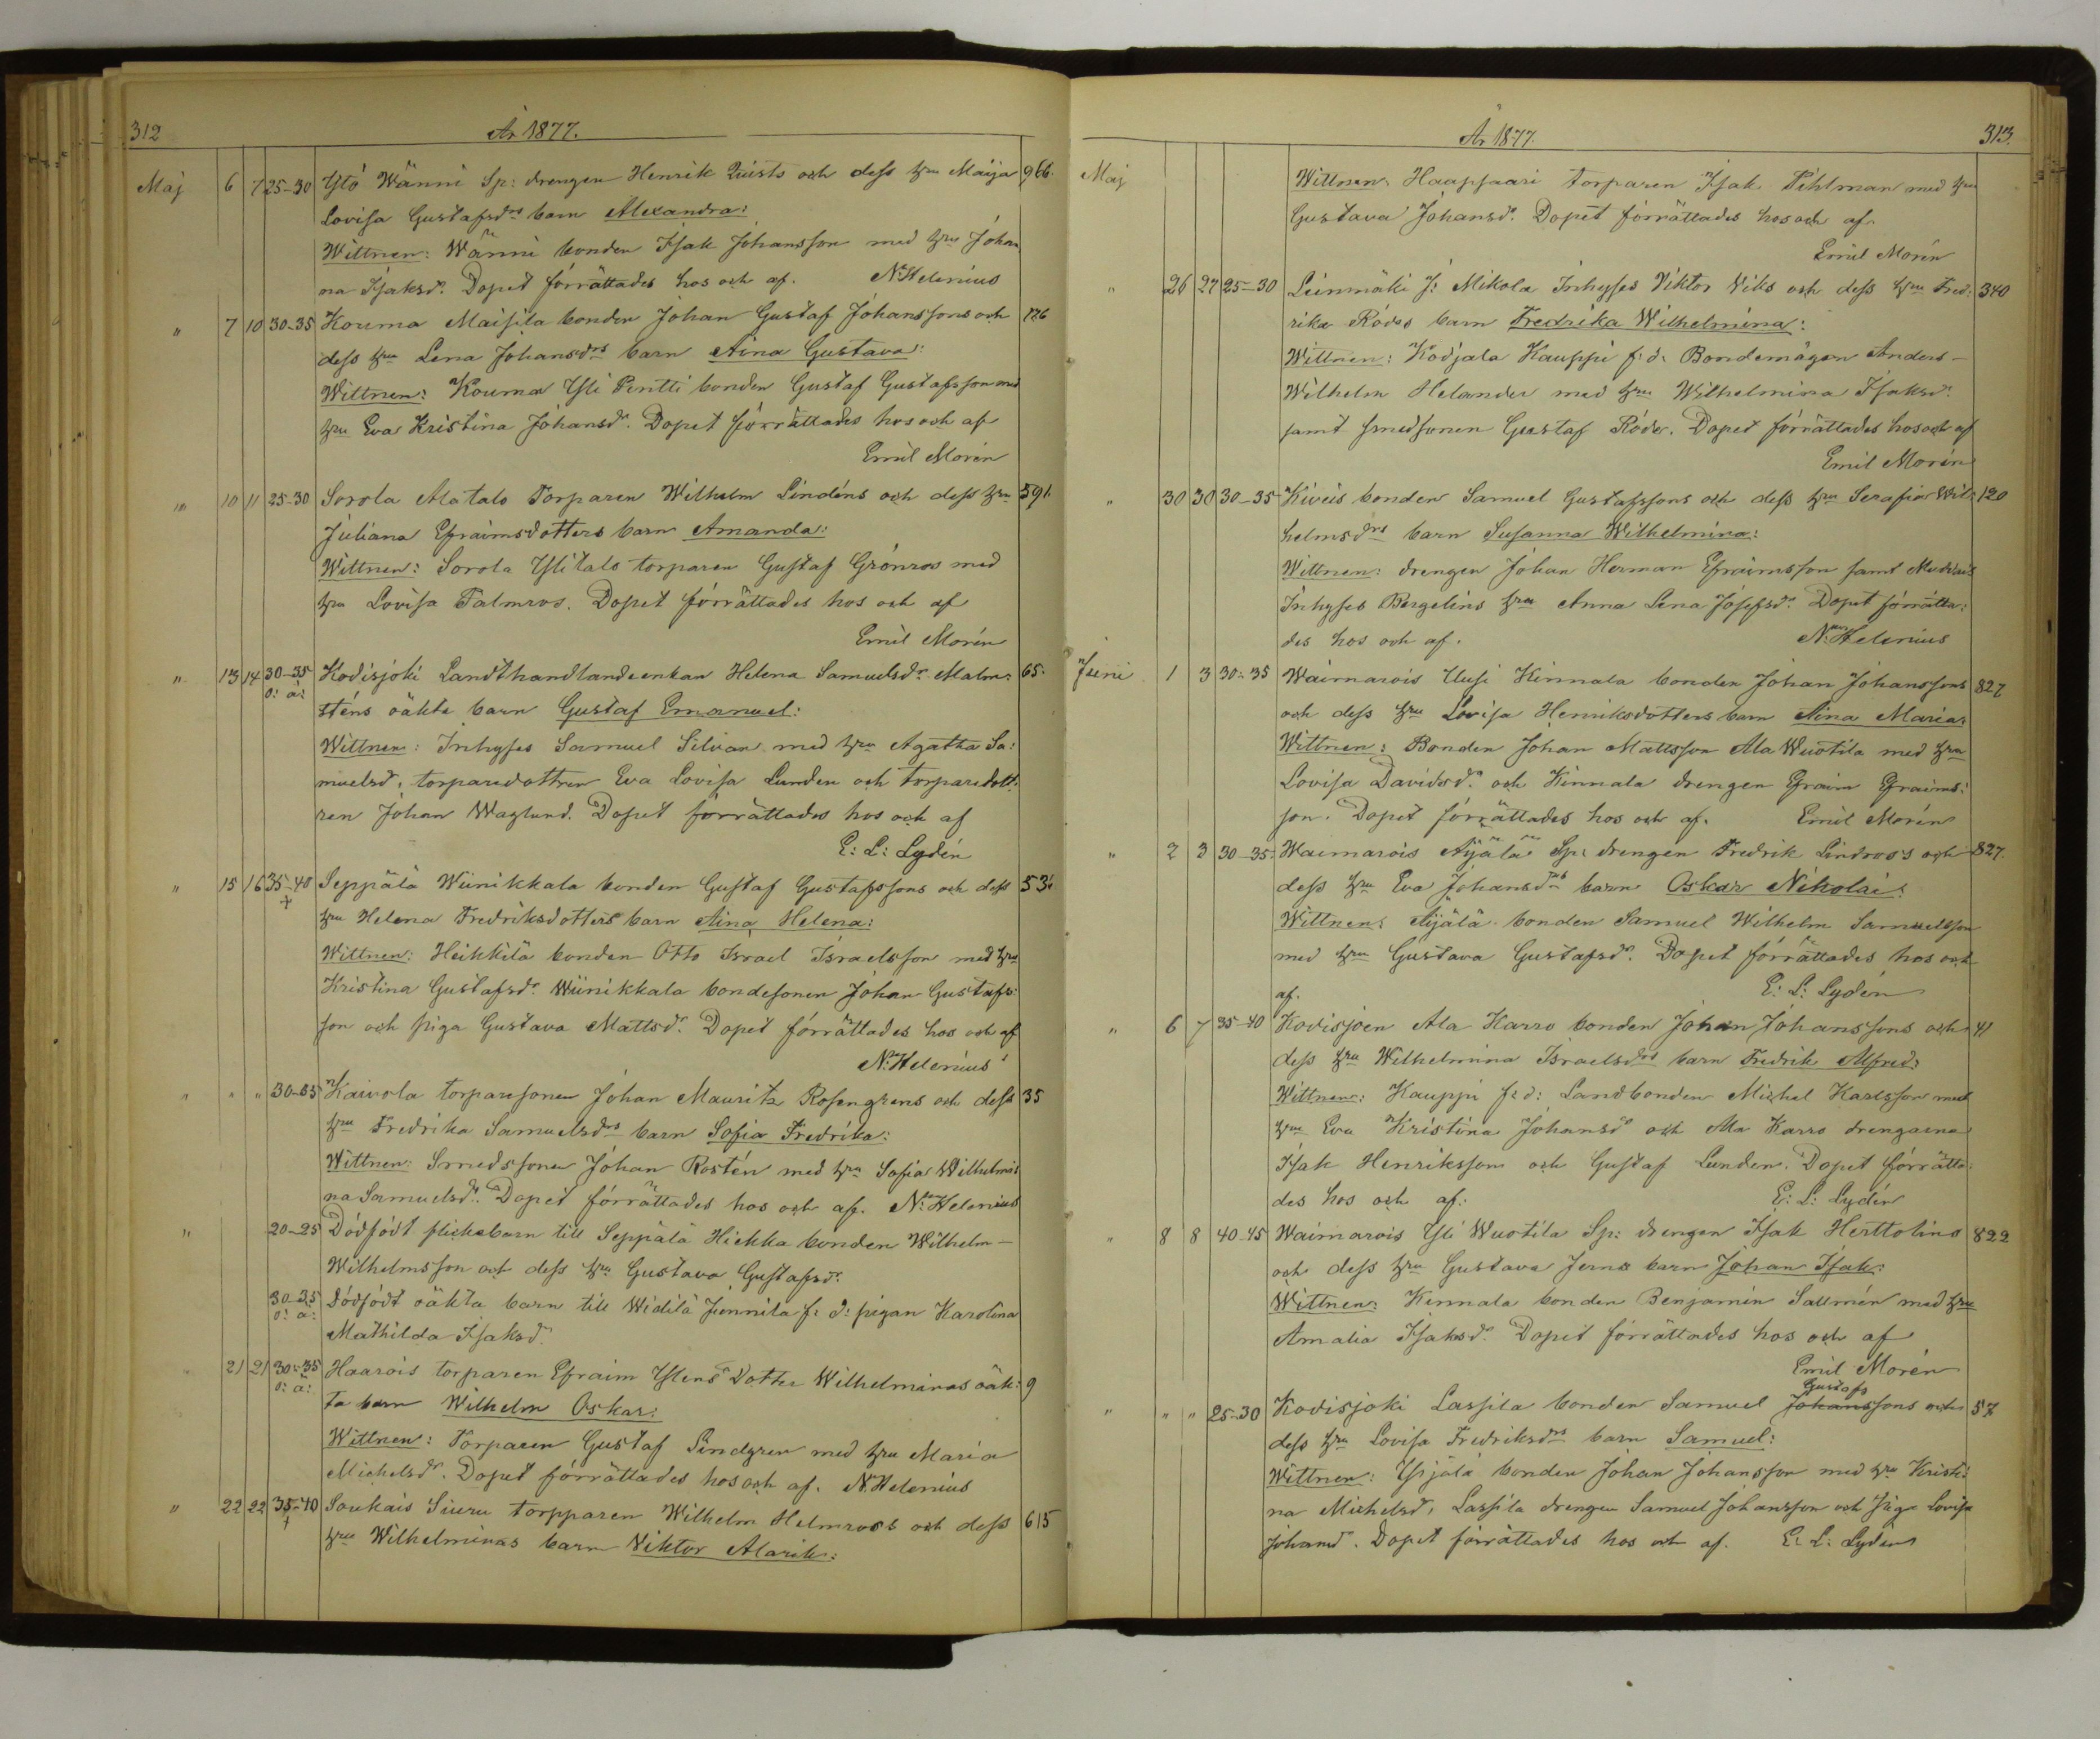 312 År 1877.
Maj 6 7 25-30 Ytö Wänni Sp: drengen Henrik Quists och dess hru Maija 966.
Lovisa Gustafsdrs barn Alexandra:
Wittnen: Wänni bonden Isak Johansson med hru Johan
na Isaksdr. Dopet förrättades hos och af. N: Helenius
" 7 10 30-35 Kouma Maisila bonden Johan Gustaf Johanssons och 726
dess hru Lena Johansdrs barn Aina Gustava:
Wittnen: Kouma Yli Pentti bonden Gustaf Gustafsson med
hru Eva Kristina Johansdr. Dopet förrättades hos och af
Emil Morén
" 10 11 25-30 Sorola Alatalo Torparen Wilhelm Lindéns och dess hru 591.
Juliana Efraimsdotters barn Amanda:
Wittnen: Sorola Ylitalo torparen Gustaf Grönros med
hru Lovisa Palmros. Dopet förrättades hos och af
Emil Morén
" 13 14 30-35 Kodisjoki Landthandlandeenkan Helena Samuelsdr Malm: 65.
o: ä: sténs oäkta barn Gustaf Emanuel:
Wittnen: Inhyses Samuel Silvan med hru Agatha Sa:
muelsdr, torparedottren Eva Lovisa Lunden och torparedott:
ren Johan Waglund. Dopet förrättades hos och af
E: L: Lydén
" 15 16 35-40 Seppälä Wiinikkala bonden Gustaf Gustafssons och dess 531
+ hru Helena Fredriksdotters barn Aina Helena:
Wittnen: Heikkilä bonden Otto Israel Israelsson med hru
Kristina Gustafsdr. Wiinikkala bondesonen Johan Gustafs:
son och piga Gustava Mattsdr. Dopet förrättades hos och af
N: Helenius
" " " 30-35 Kaivola torparesonen Johan Mauritz Rosengrens och dess 35
hru Fredrika Samuelsdrs barn Sofia Fredrika:
Wittnen: Smedssonen Johan Rostén med hru Sofia Wilhelmi:
na Samuelsdr. Dopet förrättades hos och af. N: Helenius
" 20-25 Dödfödt flickebarn till Seppälä Hiekka bonden Wilhelm
Wilhelmsson och dess hru Gustava Gustafsdr.
30-35 Dödfödt oäkta barn till Widilä Junnila f: d: pigan Karolina
o: ä: Mathilda Isaksdr.
21 21 30-35 Haarois torparen Efraim Yléns Dotter Wilhelminas oäk: 9
o: ä: ta barn Wilhelm Oskar:
Wittnen: Torparen Gustaf Lindgren med hru Maria
Michelsdr. Dopet förrättades hos och af. N: Helenius
" 22 22 35-40 Soukais Siuru torpparen Wilhelm Helmroos's och dess 615
+ hru Wilhelminas barn Viktor Alarik:
År 1877. 313.
Maj Wittnen: Haapsaari torparen Isak Pihlman med hru
Gustava Johansdr. Dopet förrättades hos och af
Emil Morén
" 26 27 25-30 Leinmäki J: Mikola Inhyses Viktor Viks och dess hru Fred: 340
rika Röds barn Fredrika Wilhelmina:
Wittnen: Kodjala Kauppi f: d: Bondemågen Anders
Wilhelm Helander med hru Wilhelmina Isaksdr.
samt smedsonen Gustaf Röds. Dopet förrättades hos och af
Emil Morén
" 30 30 30-35 Kiveis bonden Samuel Gustafssons och dess hru Serafia Wil: 120
helmsdrs barn Susanna Wilhelmina:
Wittnen: drengen Johan Herman Efraimsson samt
Inhyses Bergelins hru Anna Lena Josefsdr. Dopet förrätta:
des hos och af. N: Helenius
Juni 1 3 30-35 Waimarois Uusi Kinnala bonden Johan Johanssons 827
och dess hru Lovisa Henriksdotters barn Aina Maria:
Wittnen: Bonden Johan Mattsson Ala Wuotila med hru
Lovisa Davidsdr. och Kinnala drengen Efraim Efraims:
son. Dopet förrättades hos och af. Emil Morén
" 2 3 30-35 Waimarois Äijälä Sp: drengen Fredrik Lindroos's och 827.
dess hru Eva Johansdrs barn Oskar Nikolai:
Wittnen: Äijälä bonden Samuel Wilhelm Samuelsson
med hru Gustava Gustafsdr. Dopet förrättades hos och
af. E: L: Lydén
" 6 7 35-40 Kodisjoen Ala Karro bonden Johan Johanssons och 41
dess hru Wilhelmina Israelsdrs barn Fredrik Alfred:
Wittnen: Kauppi f: d: Landbonden Michel Karlsson med
hru Eva Kristina Johansdr och Ala Karro drengarna
Isak Henriksson och Gustaf Lunden. Dopet förrätta:
des hos och af. E: L: Lydén
" 8 8 40-45 Waimarois Yli Wuotila Sp: drengen Isak Herttolins 822
och dess hru Gustava Jerns barn Johan Isak:
Wittnen: Kinnala bonden Benjamin Sallmén med hru
Amalia Isaksdr. Dopet förrättades hos och af
Emil Morén
Gustafs
" " " 25-30 Kodisjoki Lassila bonden Samuel Johanssons och 57
dess hru Lovisa Fredriksdrs barn Samuel:
Wittnen: Ypjälä bonden Johan Johansson med hru Kristi:
na Michelsdr, Lassila drengen Samuel Johansson och piga Lovisa
Johansd. Dopet förrättades hos och af. E: L: Lydén